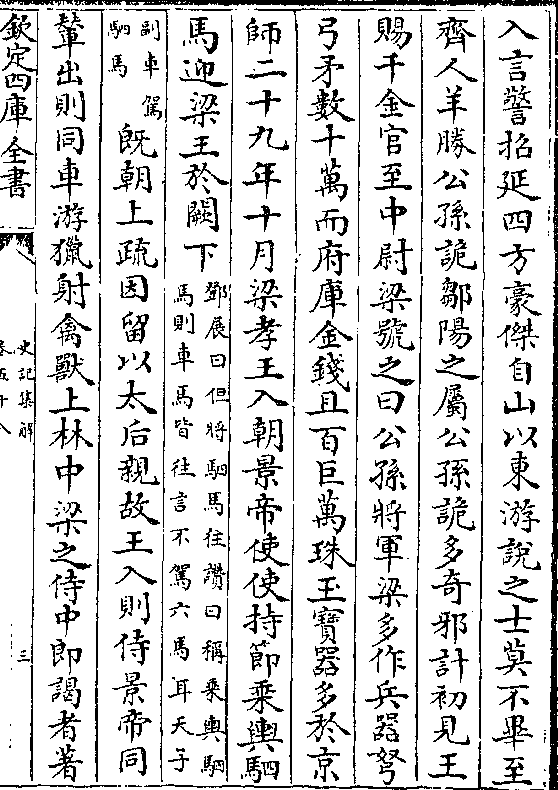 入言警招延四方豪傑自山以東游說之士莫不畢至
齊人羊勝公孫詭鄒陽之屬公孫詭多奇邪計初見王
賜千金官至中尉梁號之曰公孫將軍梁多作兵器弩
弓矛數十萬而府庫金錢且百巨萬珠玉寶器多於京
師二十九年十月梁孝王入朝景帝使使持節乘輿駟
馬迎梁王於闕下
鄧展曰但將駟馬往讚曰稱乘輿駟
馬則車馬皆往言不駕六馬耳天子
副車駕
駟馬
旣朝上疏因留以太后親故王入則侍景帝同
輦出則同車游獵射禽獸上林中梁之侍中郎謁者著
欽定四庫全書
史記集解
卷五十八
三